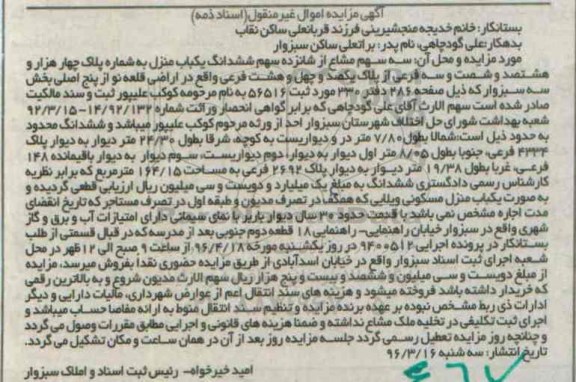 آگهی مزایده اموال غیر منقول (اسناد ذمه)
بستانکار: خانم خدیجه منجشیرینی فرزند قربانعلی ساکن نقاب
بدهکار: علی گودچاهی، نام پدر: براتعلی ساکن سبزوار
مورد مزایده و محل آن: سه سهم مشاع از شانزده سهم ششدانگ یکباب منزل به شماره پلاک چهار هزار و
هشتصد و شصت و سه فرعی از پلاک یکصد و چهل و هشت فرعی واقع در اراضی قلعه نو از پنج اصلی بخش
سه سبزوار که ذیل صفحه ۴۸۶ دفتر ۳۳۰ مورد ثبت ۵۶۵۱۶ به نام مرحومه کوکب علیپور ثبت و سند مالکیت
صادر شده است سهم الارث آقای علی گودچاهی که برابر گواهی انحصار وراثت شماره ۱۴/۹۲/۱۳۲-۹۲/۳/۱۵
شعبه بهداشت شورای حل اختلاف شهرستان سبزوار احد از ورثه مرحوم کوکب علیپور میباشد و ششدانگ محدود
به حدود ذیل است: شمالا بطول ۷/۸۰ متر در و دیواریست به کوچه، شرقا بطول ۲۴/۳۰ متر دیوار به دیوار پلاک
۴۳۳۴ فرعی، جنوبا بطول ۸/۰۵ متر اول دیوار به دیوار، دوم دیواریست، سوم دیوار به دیوار باقیمانده ۱۴۸
فرعی، غربا بطول ۱۹/۳۸ متر دیوار به دیوار پلاک ۲۶۹۲ فرعی به مساحت ۱۶۴/۱۵ مترمربع که برابر نظریه
کارشناس رسمی دادگستری ششدانگ به مبلغ یک میلیارد و دویست و سی میلیون ریال ارزیابی قطعی گردیده و
به صورت یکباب منزل مسکونی ویلایی که همکف در تصرف مدیون و طبقه اول در تصرف مستاجر که تاریخ انقضای
مدت اجاره مشخص نمی باشد با قدمت حدود ۳۰ سال دیوار باربر با نمای سیمانی دارای امتیازات آب و برق و گاز
شهری واقع در سبزوار خیابان راهنمایی- راهنمایی ۱۸ قطعه دوم جنوبی بعد از مدرسه که در قبال قسمتی از طلب
بستانکار در پرونده اجرایی ۹۴۰۰۵۱۲ در روز یکشنبه مورخه ۹۶/۴/۱۸ از ساعت ۹ صبح الی ۱۲ ظهر در محل
شعبه اجرای ثبت اسناد سبزوار واقع در خیابان اسدآبادی از طریق مزایده حضوری نقدا بفروش میرسد، مزایده
از مبلغ دویست و سی میلیون و ششصد و بیست و پنج هزار ریال سهم الارث مدیون شروع و به بالاترین رقمی
که خریدار داشته باشد فروخته میشود و هزینه های سند انتقال اعم از عوارض شهرداری، مالیات دارایی و دیگر
ادارات ذی ربط مشخص نبوده بر عهده برنده مزایده و تنظیم سند انتقال منوط به ارائه مفاصا حساب میباشد و
اجرای ثبت تکلیفی در تخلیه ملک مشاع نداشته و ضمنا هزینه های قانونی و اجرایی مطابق مقررات وصول می گردد
و چنانچه روز مزایده تعطیل رسمی گردد جلسه مزایده روز بعد از آن در همان ساعت و مکان تشکیل می گردد.
تاریخ انتشار: سه شنبه ۹۶/۳/۱۶
امید خیرخواه- رئیس ثبت اسناد و املاک سبزوار